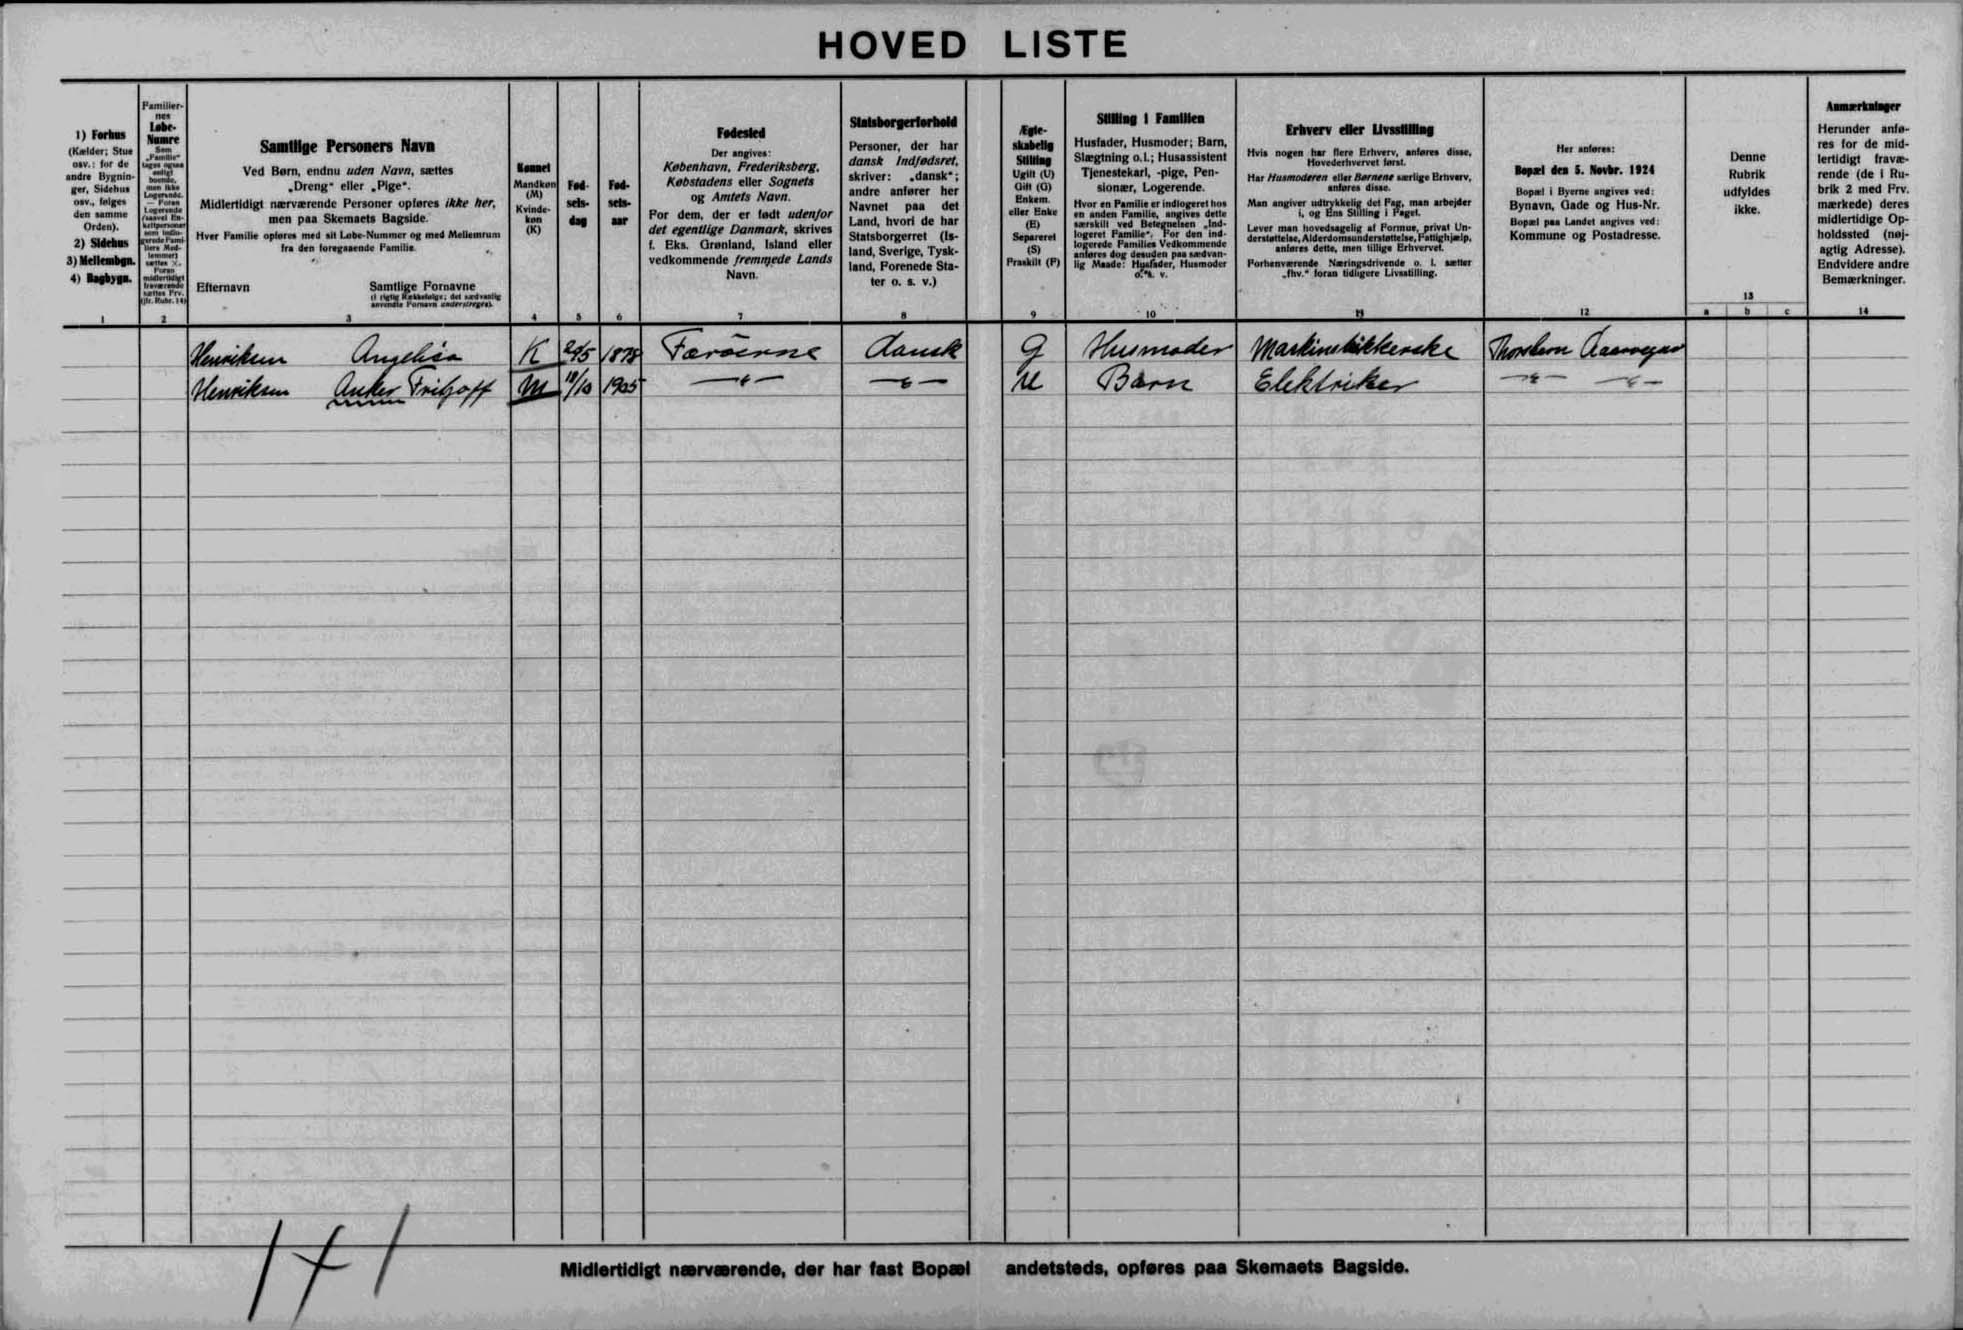 HOVED LISTE
1) Forhus
(Kælder; Stue
osv.: for de
andre Bygnin-
ger, Sidehus
osv., følges
den samme
Orden).
2) Sidehus
3) Mellembgn.
4) Bagbygn.
1
Familier-
nes
Løbe-
Numre
Som
„Familie“
tages ogsaa
enligt
boende,
men ikke
Logerende.
— Foran
Logerende
(saavel En-
keltpersoner
som indlo-
gerede Fami-
liers Med-
lemmer)
sættes ×.
Foran
midlertidigt
fraværende
sættes Frv.
(jfr. Rubr. 14)
2
Samtlige Personers Navn
Ved Børn, endnu uden Navn, sættes
„Dreng“ eller „Pige“.
Midlertidigt nærværende Personer opføres ikke her,
men paa Skemaets Bagside.
Hver Familie opføres med sit Løbe-Nummer og med Mellemrum
fra den foregaaende Familie.
Efternavn Samtlige Fornavne
(i rigtig Rækkefølge; det sædvanlig
anvendte Fornavn understreges).
3
Kønnet
Mandkøn
(M)
Kvinde-
køn
(K)
4
Fød-
sels-
dag
5
Fød-
sels-
aar
6
Fødested
Der angives:
København, Frederiksberg,
Købstadens eller Sognets
og Amtets Navn.
For dem, der er født udenfor
det egentlige Danmark, skrives
f. Eks. Grønland, Island eller
vedkommende fremmede Lands
Navn.
7
Statsborgerforhold
Personer, der har
dansk Indfødsret,
skriver: „dansk“;
andre anfører her
Navnet paa det
Land, hvori de har
Statsborgerret (Is-
land, Sverige, Tysk-
land, Forenede Sta-
ter o. s. v.)
8
Ægte-
skabelig
Stilling
Ugift (U)
Gift (G)
Enkem.
eller Enke
(E)
Separeret
(S)
Fraskilt (F)
9
Stilling i Familien
Husfader, Husmoder; Barn,
Slægtning o.l.; Husassistent
Tjenestekarl, -pige, Pen-
sionær, Logerende.
Hvor en Familie er indlogeret hos
en anden Familie, angives dette
særskilt ved Betegnelsen „Ind-
logeret Familie“. For den ind-
logerede Families Vedkommende
anføres dog desuden paa sædvan-
lig Maade: Husfader, Husmoder
o. s. v.
10
Erhverv eller Livsstilling
Hvis nogen har flere Erhverv, anføres disse,
Hovederhvervet først.
Har Husmoderen eller Børnene særlige Erhverv,
anføres disse.
Man angiver udtrykkelig det Fag, man arbejder
i, og Ens Stilling i Faget.
Lever man hovedsagelig af Formue, privat Un-
derstøttelse, Alderdomsunderstøttelse, Fattighjælp,
anføres dette, men tillige Erhvervet.
Forhenværende Næringsdrivende o. l. sætter
„fhv.“ foran tidligere Livsstilling.
11
Her anføres:
Bopæl den 5. Novbr. 1924
Bopæl i Byerne angives ved:
Bynavn, Gade og Hus-Nr.
Bopæl paa Landet angives ved:
Kommune og Postadresse.
12
Denne
Rubrik
udfyldes
ikke.
13
a b c
Anmærkninger
Herunder anfø-
res for de mid-
lertidigt fravæ-
rende (de i Ru-
brik 2 med Frv.
mærkede) deres
midlertidige Op-
holdssted (nøj-
agtig Adresse).
Endvidere andre
Bemærkninger.
14
Henriksen Angelica K 29/5 1878 Færöerne dansk G Husmoder Maskinstrikkerske Thorshavn
Henriksen Anker Fritjoff M 18/10 1905 —"— —"— U Barn Elektriker —"— —"—
141
Midlertidigt nærværende, der har fast Bopæl andetsteds, opføres paa Skemaets Bagside.